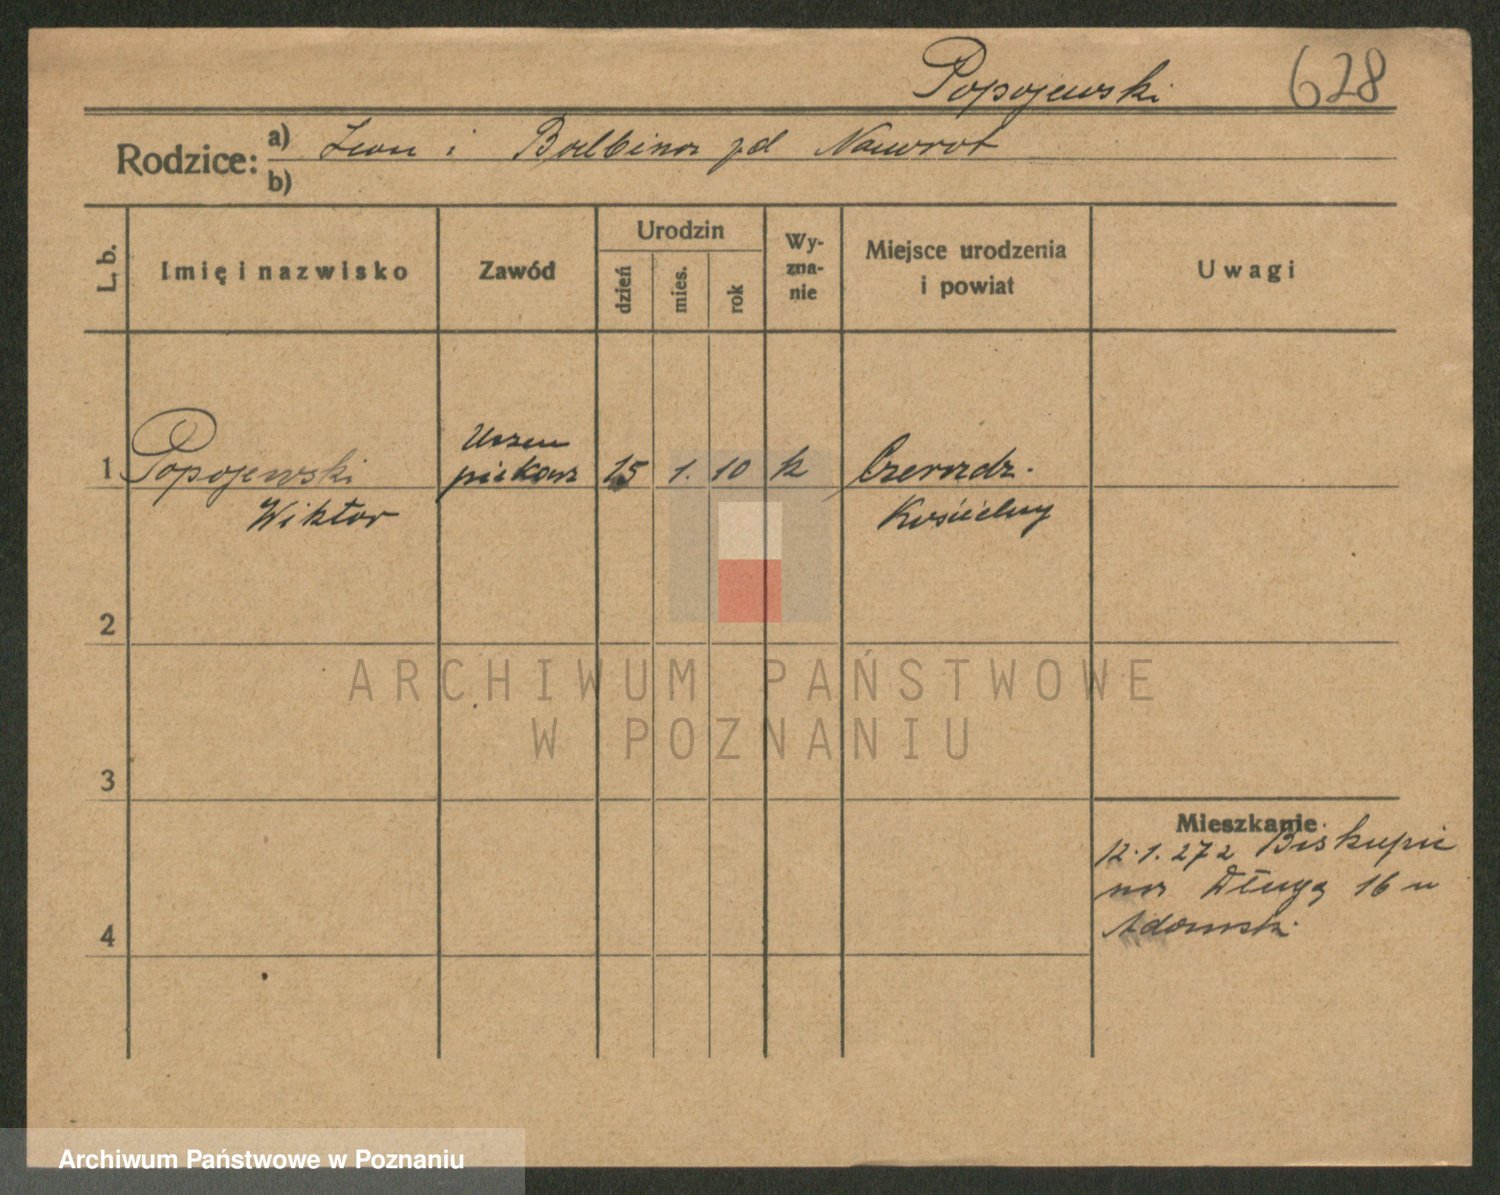 Popojewski 628
Rodzice: a) Leon i Balbina zd Nawrot
b)
L. b. Imię i nazwisko Zawód Urodzin Wy-
zna-
nie Miejsce urodzenia
i powiat Uwagi
dzień mies. rok
1 Popojewski
Wiktor
Uczeń
piekarz 15 1. 10 k
Kościelny
2
3
4
Mieszkanie
12.1.27 z Biskupic
na Długą 16 u
Adamski
ARCHIWUM PAŃSTWOWE
W POZNANIU
Archiwum Państwowe w Poznaniu